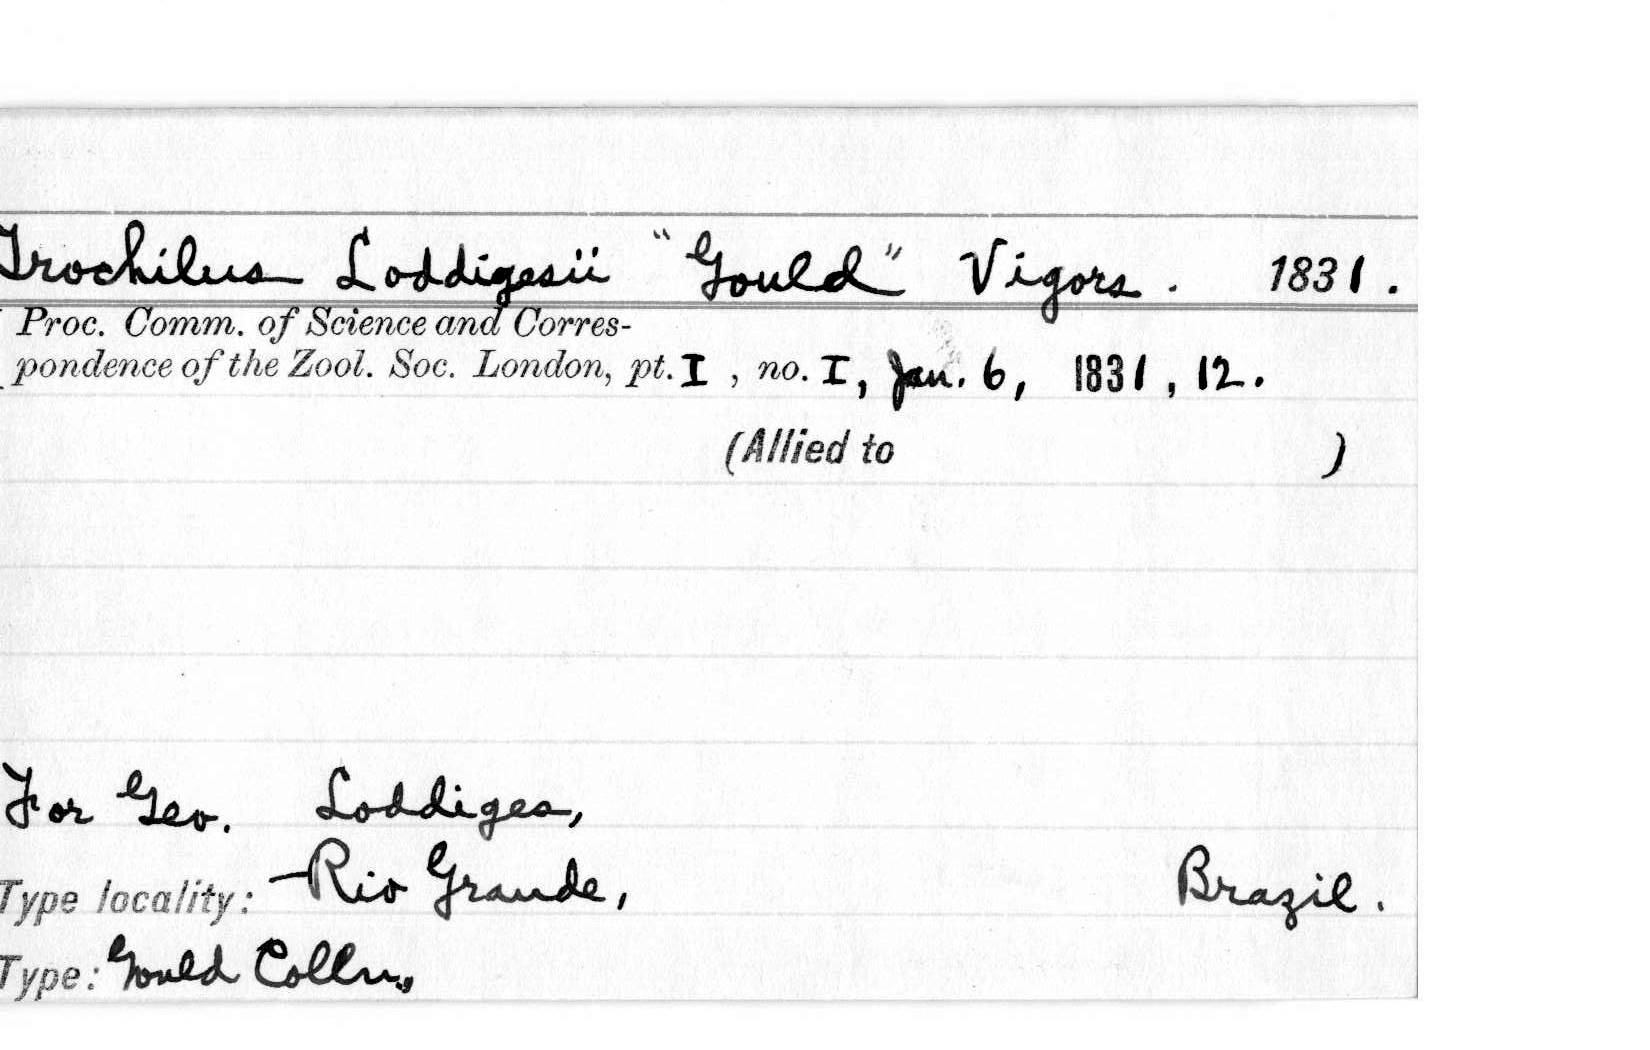 Trochilus Loddigesii "Gould" Vigors. 1831.
Proc. Comm. of Science and Corres-
pondence of the Zool. Soc. London, pt. I, no. I, Jan. 6, 1831, 12.
(Allied to )
For Geo. Loddiges,
Type locality: Rio Grande, Brazil.
Type: Gould Colln.,